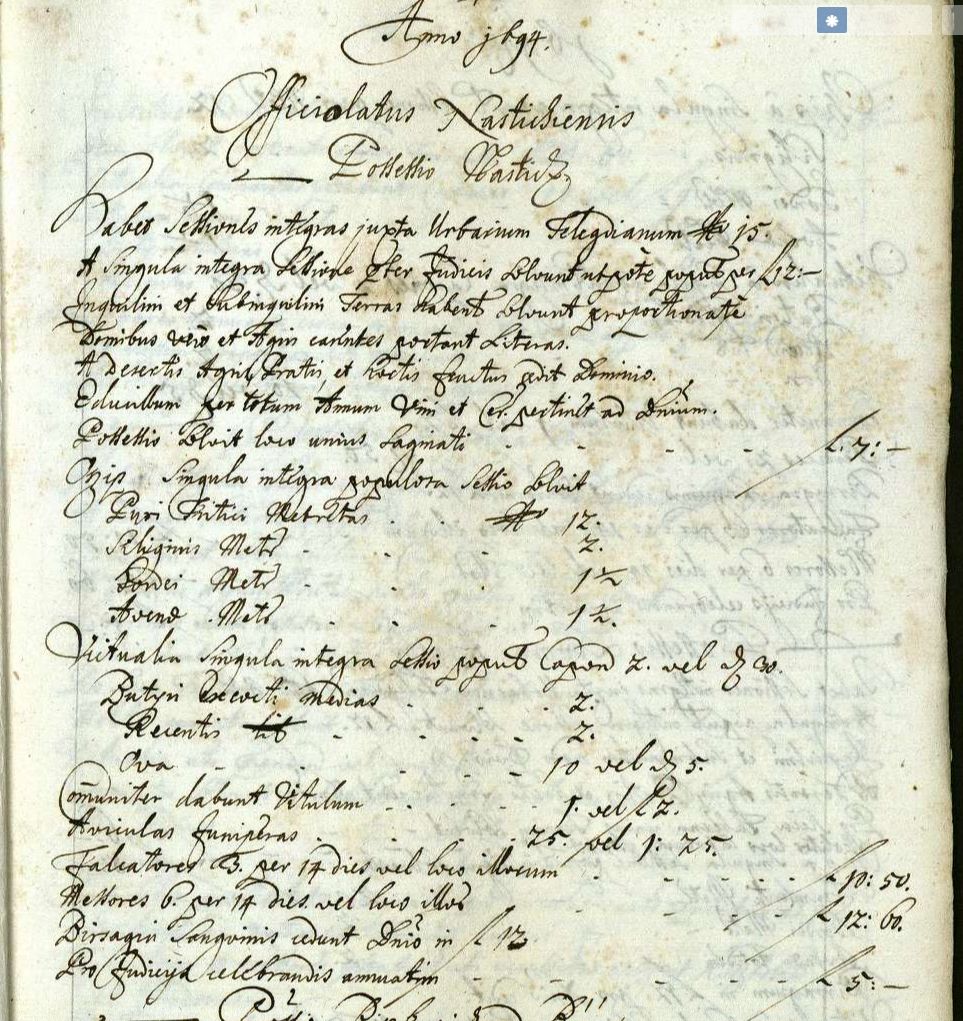 Anno 1694.
Officiolatus Nastichiensis
Possessio Nastich
Habet Sessiones integras juxta Urbarium Telegdianum No 15.
A singula integra Sessione praeter Judicis solvunt utpote populs per f 12:—
Inquilini et Subinquilini Terras habent solvunt proportionate
Domibus vero et Agris carentes portant Literas.
A Desertis Agris, Pratis, et hortis fructus cedit Domino.
Educillum per totum Annum Vini et Cer. pertinet ad Dnum.
Possessio solvit loco unius saginati - - - f. 7:—
Singula integra populosa Sessio solvit
Puri Tritici Metretas . . 12.
Siliginis Metr - . . 2.
Hordei Metr - . . 1½
Avenae Metr . . . 1½.
Victualia singula integra Sessio popul Capon 2. vel d 30.
Butyri excocti medias . . . 2.
Recentis - . . . 2.
Ova - . . . 10 vel d 5.
Comuniter dabunt Vitulum - - - 1. vel f 2.
Aviculas Juniperas . . . 25. vel 1: 25.
Falcatores 3. per 14 dies vel loco illorum - - - f 10: 50.
Messores 6. per 14 dies vel loco illor - - - f 12: 60.
Birsagia Sanguinis cedunt Dno in f 12
Pro Judicijs celebrandis annuatim - - - f 5:—